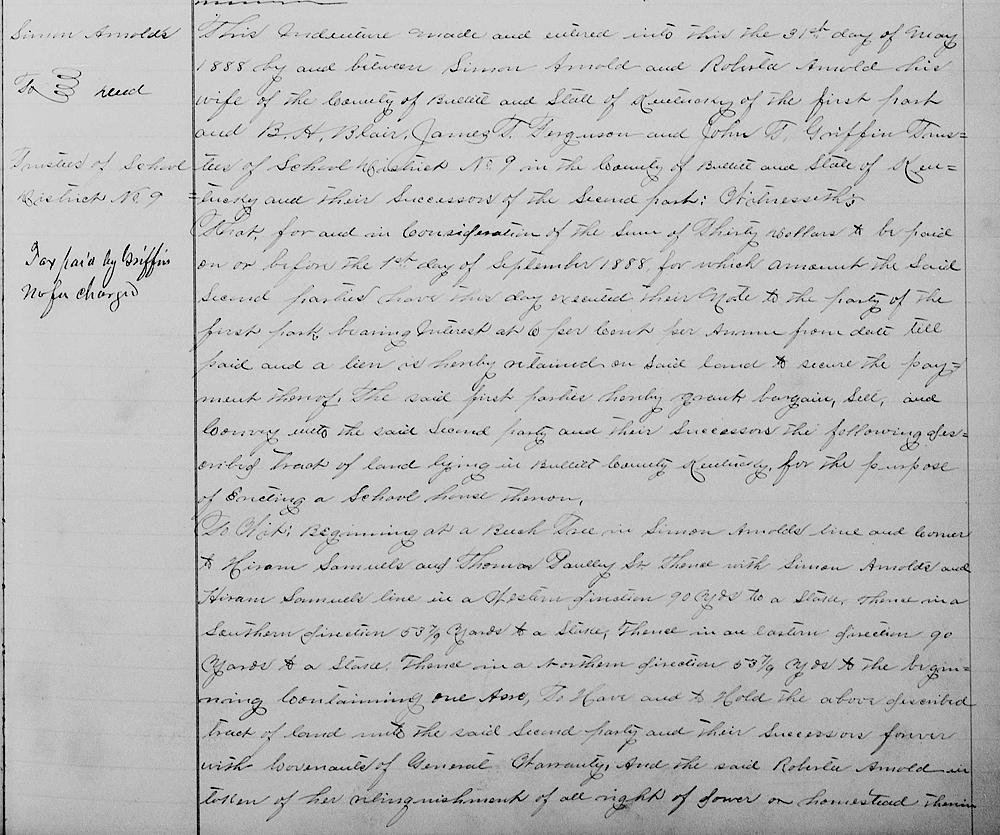 Simon Arnolds
To } Deed
Trustees of School
District No 9
Tax paid by Griffin
No fee charged
This Indenture made and entered into this the 31st day of May
1888 by and between Simon Arnold and Roberta Arnold his
wife of the County of Bullitt and State of Kentucky of the first part
and B. H. Blair, James T. Ferguson and John T. Griffin Trus=
tees of School District No 9 in the County of Bullitt and State of Ken=
=tucky and their Successors of the Second part: Witnesseth:
That, for and in Consideration of the Sum of Thirty Dollars to be paid
on or before the 1st day of September 1888, for which amount the Said
Second parties have this day executed their Note to the party of the
first part, bearing Interest at 6 per Cent per Annum from date till
paid and a lien is hereby retained on Said land to secure the pay=
ment thereof. The said first parties hereby grant, bargain, Sell, and
Convey unto the said Second party and their Successors the following des=
cribed Tract of land lying in Bullitt County Kentucky, for the purpose
of Erecting a School house thereon,
To Wit: Beginning at a Beech Tree in Simon Arnolds line and Corner
to Hiram Samuels and Thomas Paulley Sr Thence with Simon Arnolds and
Hiram Samuels line in a Western direction 90 Yds to a Stake, Thence in a
Southern direction 53 7/9 Yards to a Stake, Thence in an Eastern direction 90
Yards to a Stake, Thence in a Northern direction 53 7/9 Yds to the begin=
ning Containing one Acre, To Have and to Hold the above described
tract of land unto the said Second party and their Successors forever
with Covenants of General Warranty, And the said Roberta Arnold in
token of her relinquishment of all right of dower or homestead therein